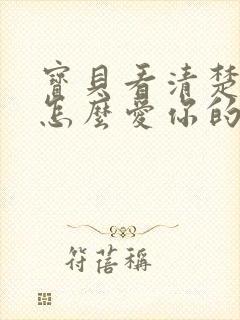 寶貝看清楚
怎麼愛你的
符蓓稱